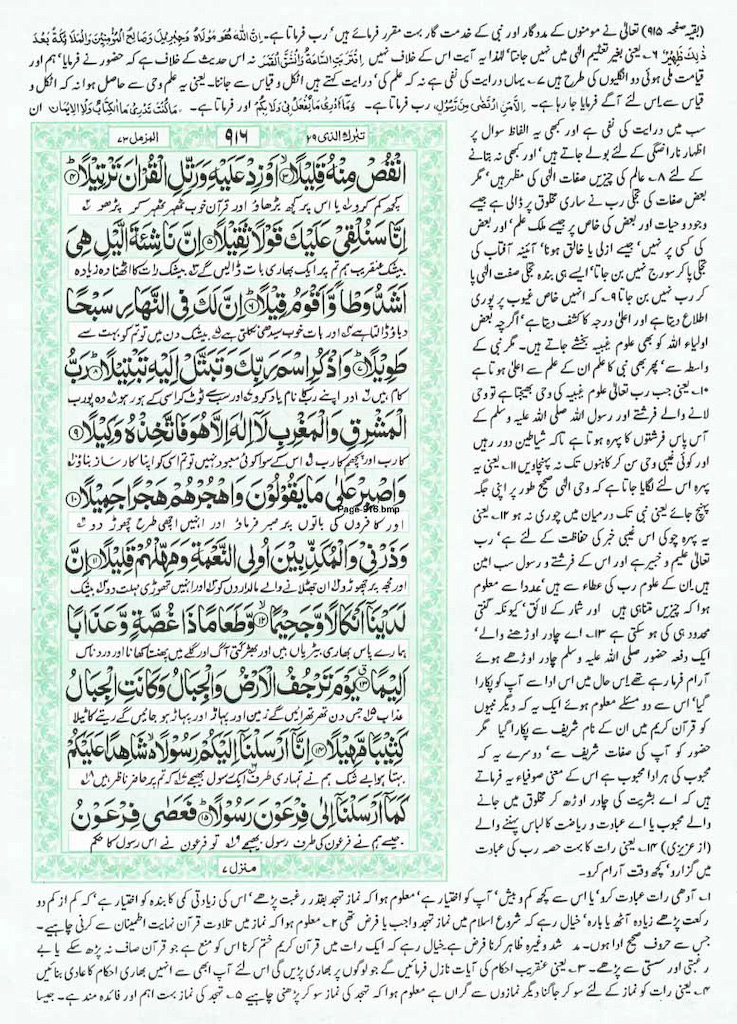 (بقیہ صفحہ ۹۱۵) تعالٰی نے مومنوں کے مددگار اور نبی کے خدمت گار بہت مقرر فرمائے ہیں' رب فرماتا ہے۔ اِنَّ اللهَ هُوَ مَوْلَاهُ وَجِبْرِيلَ وَصَالِحُ الْمُؤْمِنِينَ وَالْمَلَائِكَةُ بَعْدَ
ذٰلِكَ ظَهِيْرٌ ۶؎ یعنی بغیر تعلیم الٰہی میں نہیں جانتا' لہٰذا یہ آیت اس کے خلاف نہیں اِقْتَرَبَتِ السَّاعَةُ وَانْشَقَّ الْقَمَرُ نہ اس حدیث کے خلاف ہے کہ حضور نے فرمایا' ہم اور
قیامت ملی ہوئی دو انگلیوں کی طرح ہیں ۷؎ یہاں درایت کی نفی ہے نہ کہ علم کی' درایت کہتے ہیں اٹکل و قیاس سے جاننا۔ یعنی یہ علم وحی سے حاصل ہوا نہ کہ اٹکل و
قیاس سے اس لئے آگے فرمایا جا رہا ہے۔ اِلَّا مَنِ ارْتَضٰى مِنْ رَّسُوْلٍ رب فرماتا ہے۔ وَمَا اَدْرِيْ مَا يُفْعَلُ بِيْ وَلَا بِكُمْ اور فرماتا ہے۔ مَا كُنْتَ تَدْرِيْ مَا الْكِتَابُ وَلَا الْاِيْمَانُ ان
سب میں درایت کی نفی ہے اور کبھی یہ الفاظ سوال پر
اظہار ناراضگی کے لئے بولے جاتے ہیں' اور کبھی نہ بتانے
کے لئے ۸؎ عالم کی چیزیں صفات الٰہی کی مظہر ہیں' مگر
بعض صفات کی تجلی رب نے ساری مخلوق پر ڈالی ہے جیسے
وجود و حیات اور بعض کی خاص پر جیسے ملک علم' اور بعض
کی کسی پر نہیں' جیسے ازلی یا خالق ہونا' آئینہ آفتاب کی
تجلی پا کر سورج نہیں بن جاتا' ایسے ہی بندہ تجلی صفت الٰہی پا
کر رب نہیں بن جاتا ۹؎ کہ انہیں خاص غیوب پر پوری
اطلاع دیتا ہے اور اعلٰی درجہ کا کشف دیتا ہے' اگرچہ بعض
اولیاء اللہ کو بھی علوم غیبیہ بخشے جاتے ہیں۔ مگر نبی کے
واسطہ سے' پھر بھی نبی کا علم ان کے علم سے اعلٰی ہوتا ہے
۱۰؎ یعنی جب رب تعالٰی علوم غیبیہ کی وحی بھیجتا ہے تو وحی
لانے والے فرشتے اور رسول اللہ صلی اللہ علیہ وسلم کے
آس پاس فرشتوں کا پہرہ ہوتا ہے تاکہ شیاطین دور رہیں
اور کوئی غیبی وحی سن کر کاہنوں تک نہ پہنچاویں ۱۱؎ یعنی یہ
پہرہ اس لئے لگایا جاتا ہے کہ وحی الٰہی صحیح طور پر اپنی جگہ
پہنچ جائے یعنی نبی تک درمیان میں چوری نہ ہو ۱۲؎ یعنی
یہ پہرہ چوکی اس غیبی خبر کی حفاظت کے لئے ہے' رب
تعالٰی علیم و خبیر ہے اور اس کے فرشتے و رسول سب امین
ہیں۔ ان کے علوم رب کی عطاء سے ہیں' عددا سے معلوم
ہوا کہ چیزیں متناہی ہیں اور شمار کے لائق' کیونکہ گنتی
محدود ہی کی ہو سکتی ہے ۱۳؎ اے چادر اوڑھنے والے'
ایک دفعہ حضور صلی اللہ علیہ وسلم چادر اوڑھے ہوئے
آرام فرما رہے تھے۔ اس حال میں اس ادا سے آپ کو پکارا
گیا' اس سے دو مسئلے معلوم ہوئے ایک یہ کہ دیگر نبیوں
کو قرآن کریم میں ان کے نام شریف سے پکارا گیا مگر
حضور کو آپ کی صفات شریف سے' دوسرے یہ کہ
محبوب کی ہر ادا محبوب ہے اس کے معنی صوفیاء یہ فرماتے
ہیں کہ اے بشریت کی چادر اوڑھ کر مخلوق میں جانے
والے محبوب یا اے عبادت و ریاضت کا لباس پہننے والے
(از عزیزی) ۱۴؎ یعنی رات کا بہت حصہ رب کی عبادت
میں گزارو' کچھ وقت آرام کرو۔
تبٰرك الذی ۲۹
۹۱۶
المزمل ۷۳
انْقُصْ مِنْهُ قَلِيْلًا ﴿۳﴾ اَوْ زِدْ عَلَيْهِ وَرَتِّلِ الْقُرْاٰنَ تَرْتِيْلًا ﴿۴﴾
کچھ کم کرو یا اس پر کچھ بڑھاؤ اور قرآن خوب ٹھہر ٹھہر کر پڑھو
اِنَّا سَنُلْقِيْ عَلَيْكَ قَوْلًا ثَقِيْلًا ﴿۵﴾ اِنَّ نَاشِئَةَ الَّيْلِ هِيَ
بیشک عنقریب ہم تم پر ایک بھاری بات ڈالیں گے بیشک رات کا اٹھنا وہ زیادہ
اَشَدُّ وَطْاً وَّاَقْوَمُ قِيْلًا ﴿۶﴾ اِنَّ لَكَ فِى النَّهَارِ سَبْحًا
دباؤ ڈالتا ہے اور بات خوب سیدھی نکلتی ہے بیشک دن میں تو تم کو بہت سے
طَوِيْلًا ﴿۷﴾ وَاذْكُرِ اسْمَ رَبِّكَ وَتَبَتَّلْ اِلَيْهِ تَبْتِيْلًا ﴿۸﴾ رَبُّ
کام ہیں اور اپنے رب کا نام یاد کرو اور سب سے ٹوٹ کر اسی کے ہو رہو وہ پورب
الْمَشْرِقِ وَالْمَغْرِبِ لَا اِلٰهَ اِلَّا هُوَ فَاتَّخِذْهُ وَكِيْلًا ﴿۹﴾
کا رب اور پچھم کا رب اس کے سوا کوئی معبود نہیں تو تم اسی کو اپنا کارساز بناؤ
وَاصْبِرْ عَلٰى مَا يَقُوْلُوْنَ وَاهْجُرْهُمْ هَجْرًا جَمِيْلًا ﴿۱۰﴾
Page-916.bmp
اور کافروں کی باتوں پر صبر فرماؤ اور انہیں اچھی طرح چھوڑ دو
وَذَرْنِيْ وَالْمُكَذِّبِيْنَ اُولِى النَّعْمَةِ وَمَهِّلْهُمْ قَلِيْلًا ﴿۱۱﴾ اِنَّ
اور مجھ پر چھوڑو ان جھٹلانے والے مالداروں کو اور انہیں تھوڑی مہلت دو بیشک
لَدَيْنَا اَنْكَالًا وَّجَحِيْمًا ﴿۱۲﴾ وَّطَعَامًا ذَا غُصَّةٍ وَّعَذَابًا
ہمارے پاس بھاری بیڑیاں ہیں اور بھڑکتی آگ اور گلے میں پھنستا کھانا اور دردناک
اَلِيْمًا ﴿۱۳﴾ يَوْمَ تَرْجُفُ الْاَرْضُ وَالْجِبَالُ وَكَانَتِ الْجِبَالُ
عذاب جس دن تھرتھرائیں گے زمین اور پہاڑ اور پہاڑ ہو جائیں گے ریتے کا ٹیلا
كَثِيْبًا مَّهِيْلًا ﴿۱۴﴾ اِنَّا اَرْسَلْنَا اِلَيْكُمْ رَسُوْلًا شَاهِدًا عَلَيْكُمْ
بہتا ہوا بے شک ہم نے تمہاری طرف ایک رسول بھیجے کہ تم پر حاضر ناظر ہیں
كَمَا اَرْسَلْنَا اِلٰى فِرْعَوْنَ رَسُوْلًا ﴿۱۵﴾ فَعَصٰى فِرْعَوْنُ
جیسے ہم نے فرعون کی طرف رسول بھیجے تو فرعون نے اس رسول کا حکم
منزل ۷
۱؎ آدھی رات عبادت کرو' یا اس سے کچھ کم و بیش' آپ کو اختیار ہے' معلوم ہوا کہ نماز تہجد بقدر رغبت پڑھے' اس کی زیادتی کمی کا بندہ کو اختیار ہے' کہ کم از کم دو
رکعت پڑھے زیادہ آٹھ یا بارہ' خیال رہے کہ شروع اسلام میں نماز تہجد واجب یا فرض تھی ۲؎ معلوم ہوا کہ نماز میں تلاوت قرآن نہایت اطمینان سے کرنی چاہیے۔
جس سے حروف صحیح ادا ہوں۔ مد شد وغیرہ ظاہر کرنا فرض ہے۔ خیال رہے کہ ایک رات میں قرآن کریم ختم کرنا اس کو منع ہے جو قرآن صاف نہ پڑھ سکے یا بے
رغبتی اور سستی سے پڑھے۔ ۳؎ یعنی عنقریب احکام کی آیات نازل فرمائیں گے جو لوگوں پر بھاری پڑیں گی اس لئے آپ ابھی سے انہیں بھاری احکام کا عادی بنائیں
۴؎ یعنی رات کو نماز کے لئے سو کر جاگنا دیگر نمازوں سے گراں ہے معلوم ہوا کہ تہجد کی نماز سو کر پڑھنی چاہیے ۵؎ تہجد کی نماز بہت اہم اور فائدہ مند ہے۔ جیسا